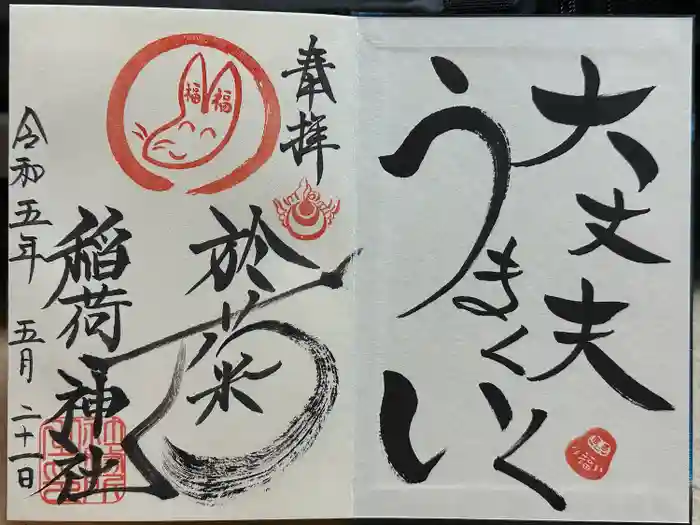 大丈夫
うまくいく
い
奉拝
福 福
於菜
稲荷神社
令和五年 五月 二十一日
福